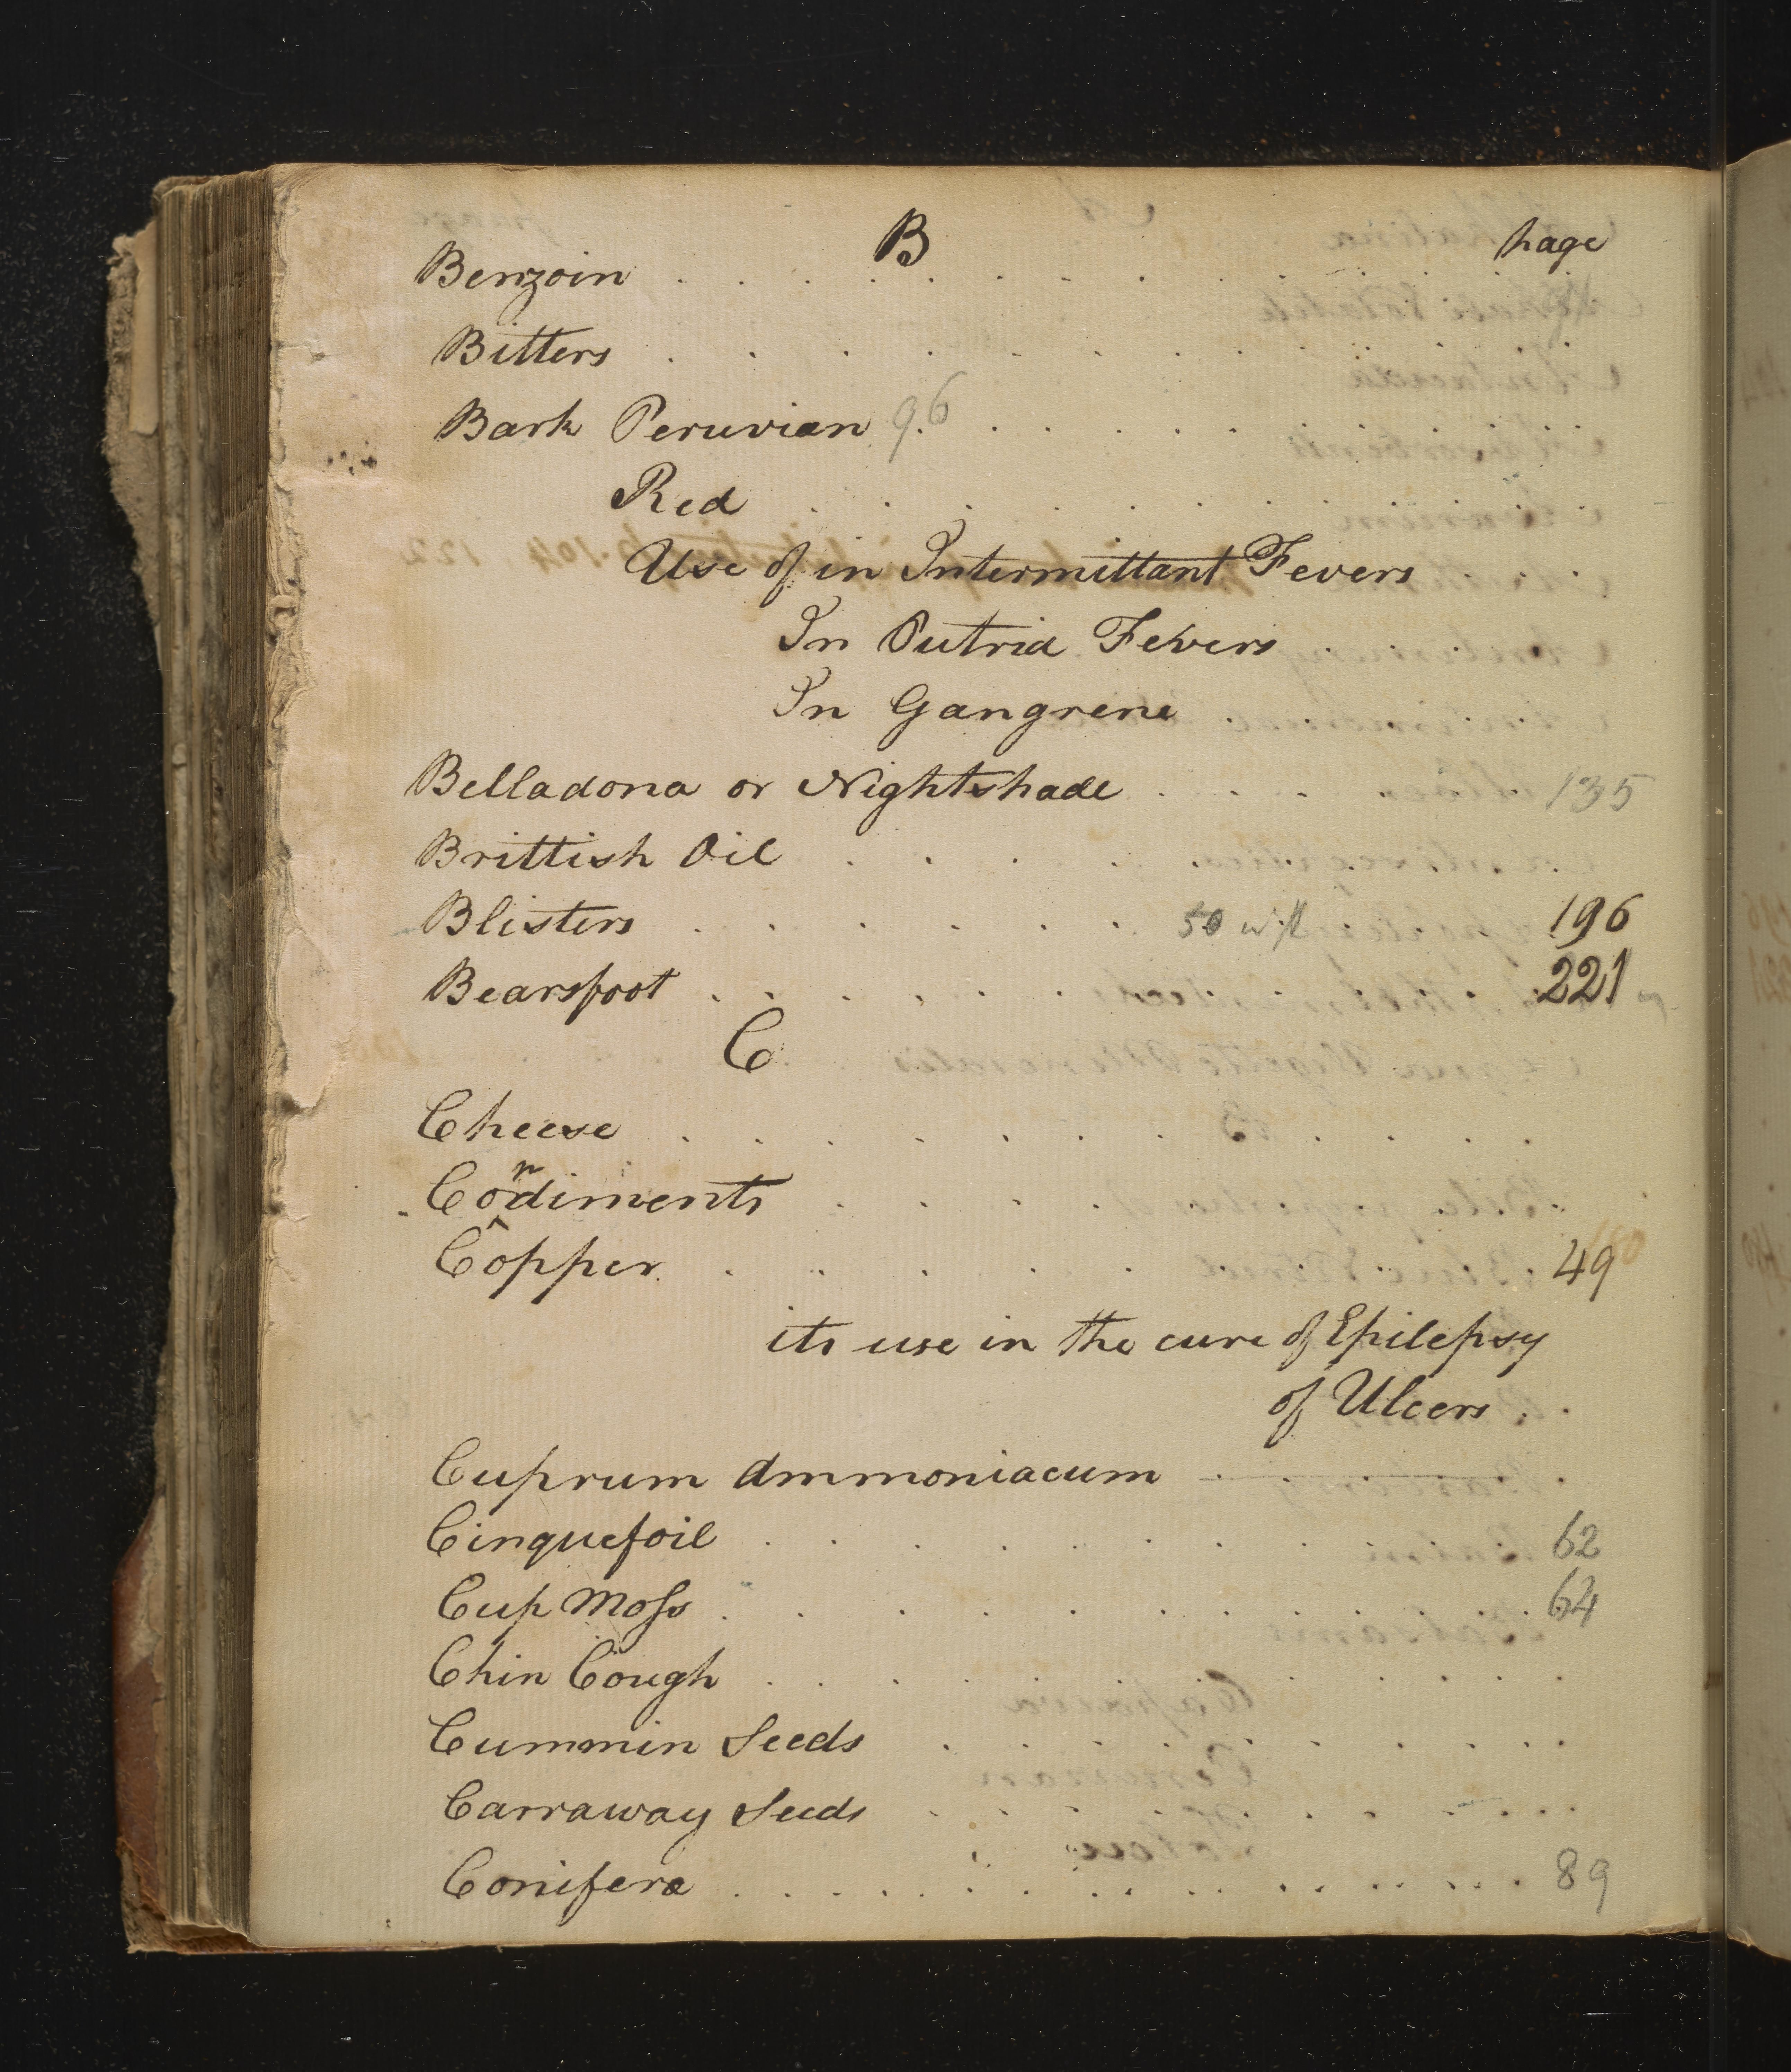 B page
Benzoin . . . . . . . . . . . .
Bitters . . . . . . . . . . . .
Bark Peruvian 96 . . . . . . . . .
Red . . . . . . . . . .
Use of in Intermittant Fevers
In Putrid Fevers . . . .
In Gangrene . . . . .
Belladona or Nightshade . . . . . . 135
Brittish Oil . . . . . . . . . .
Blisters . . . . . . 50 196
Bearsfoot . . . . . . . . . . 221
C
Cheese . . . . . . . . . . . .
Condiments . . . . . . . .
Copper . . . . . . . . 49
its use in the cure of Epilepsy
of Ulcers . .
Cuprum Ammoniacum . . . . .
Cinquefoil . . . . . . . . . 62
Cup Moss . . . . . . . . . . 64
Chin Cough . . . . . . . . . .
Cummin Seeds . . . . . . . . . .
Carraway Seeds . . . . . . . . . .
Conifera . . . . . . . . . . . . 89